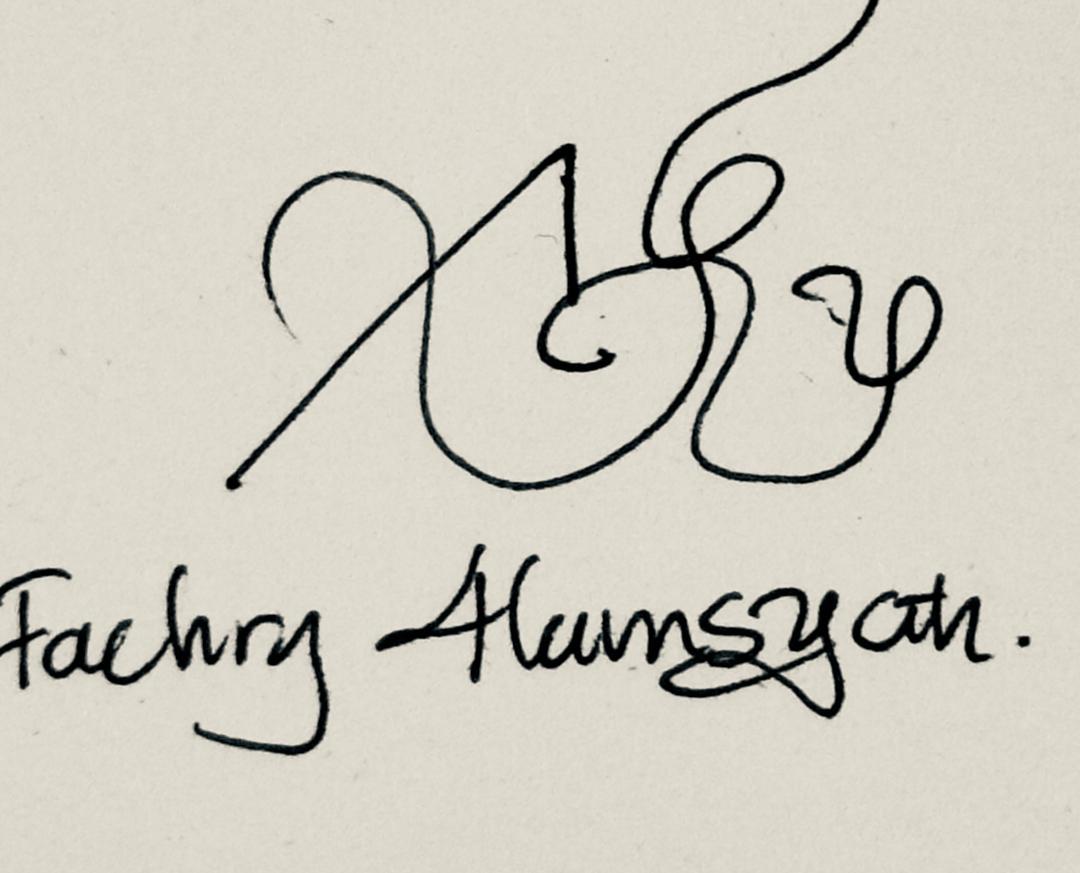 Fachry Alamsyah.